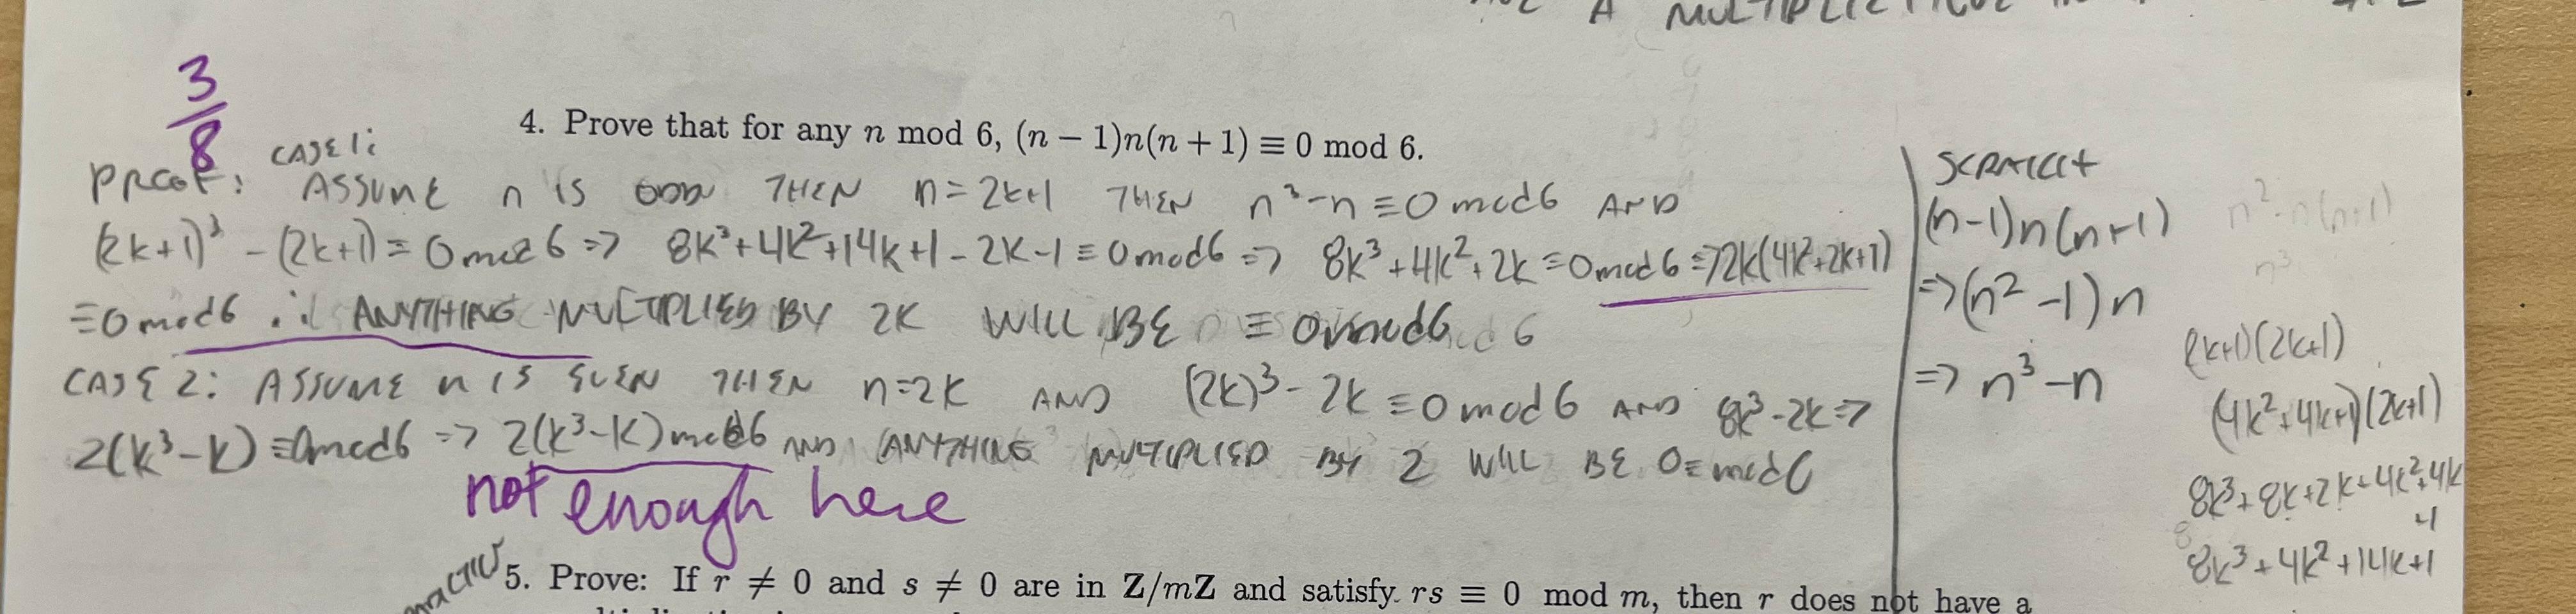 A MULTIPLICATIVE
3
8
4. Prove that for any n mod 6, (n − 1)n(n + 1) ≡ 0 mod 6.
CASE 1:
PROOF: ASSUME n IS ODD THEN n = 2k+1 THEN n³-n ≡ 0 mod 6 AND
(2k+1)³ - (2k+1) ≡ 0 mod 6 => 8k³+4k²+14k+1-2k-1 ≡ 0 mod 6 => 8k³+4k²+2k ≡ 0 mod 6 => 2k(4k²+2k+1)
≡ 0 mod 6 ∴ ANYTHING MULTIPLIED BY 2K WILL BE ≡ 0 mod 6
CASE 2: ASSUME n IS EVEN THEN n=2K AND (2k)³-2k ≡ 0 mod 6 AND 8k³-2k =>
2(k³-k) ≡ 0 mod 6 => 2(k³-k) mod 6 AND ANYTHING MULTIPLIED BY 2 WILL BE 0 ≡ mod 6
not enough here
SCRATCH
(n-1)n(n+1)
=> (n²-1)n
=> n³-n
n²-n(n+1)
n³
(2k+1)(2k+1)
(4k²+4k+1)(2k+1)
8k³+8k+2k+4k²+4k
+1
8k³+4k²+14k+1
5. Prove: If r ≠ 0 and s ≠ 0 are in Z/mZ and satisfy rs ≡ 0 mod m, then r does not have a